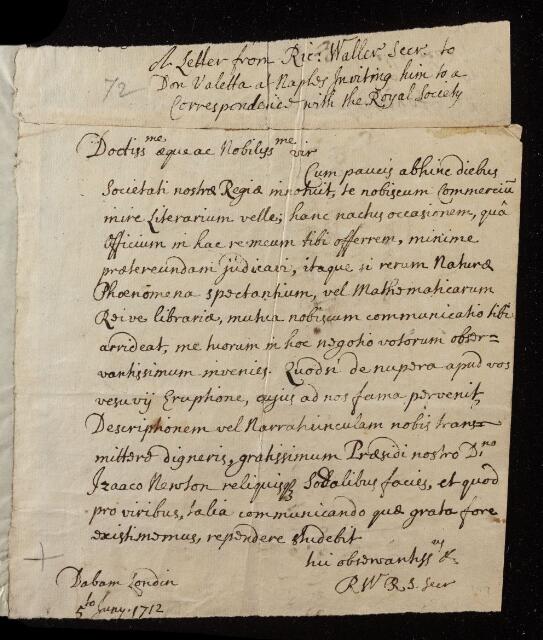 72
A Letter from Ric: Waller Secr. to
Don Valetta at Naples Inviting him to a
Correspondence with the Royal Society
Doctiss^me æque ac Nobiliss^me vir
Cum paucis abhinc diebus
Societati nostræ Regiæ innotuit, te nobiscum Commerciũ
inire Literarium velle; hanc nactus occasionem, quâ
Officium in hac re meum tibi offerrem, minime
prætereundam judicavi, itaque si rerum Naturæ
Phœnomena spectantium, vel Mathematicarum
Rei ve librariæ, mutua nobiscum communicatio tibi
arrideat, me tuorum in hoc negotio votorum obser=
vantissimum invenies. Quodsi de nupera apud vos
vesuvij Eruptione, cujus ad nos fama pervenit
Descriptionem vel Narratiunculam nobis trans=
mittere digneris, gratissimum Præsidi nostro D^no
Izaaco Newton reliquisq Sodalibus facies, et quod
pro viribus, talia communicando quæ grata fore
existimemus, rependere studebit
tui observantiss^us &c.
R W R S. Secr
Dabam Londin
5^to Juny. 1712